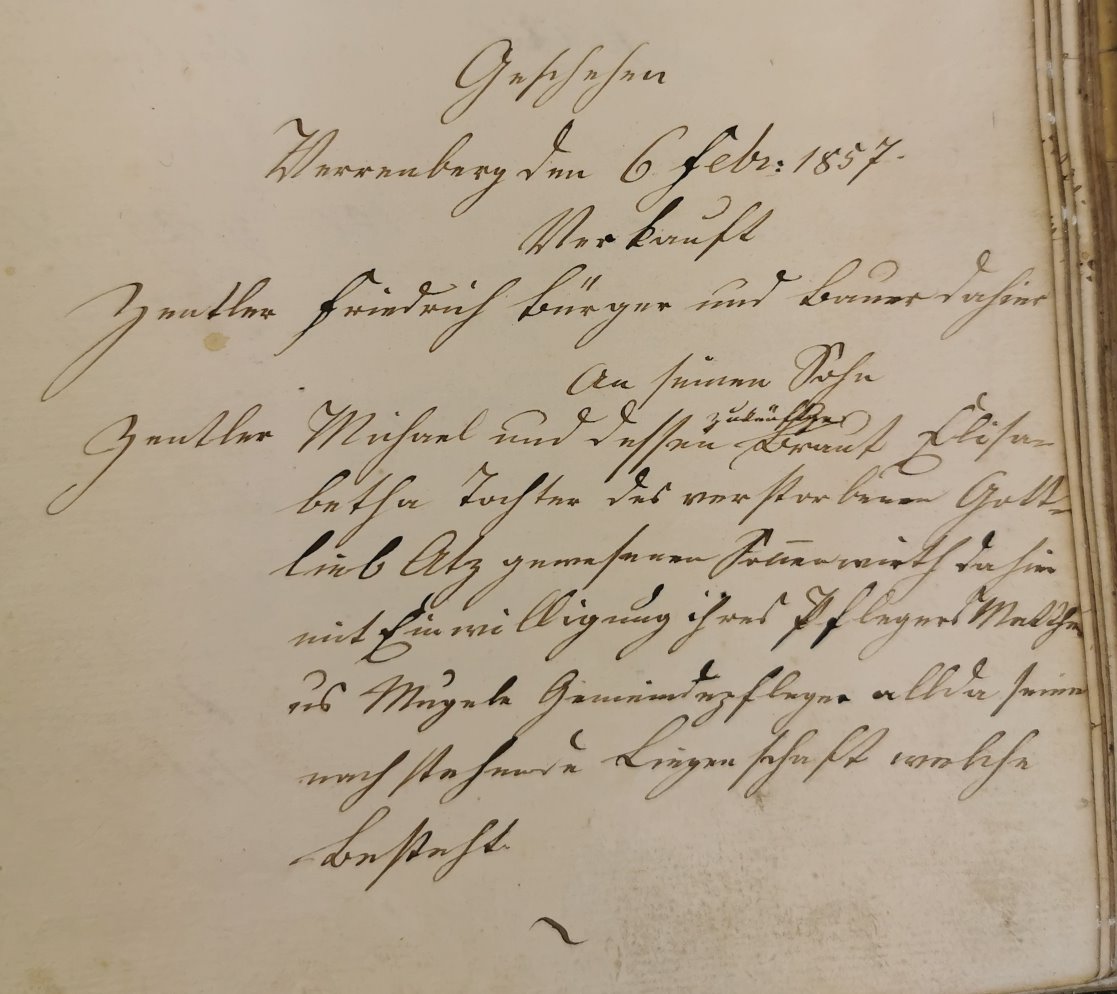 Geschehen
Verrenberg den 6 Febr: 1857.
Verkauft
Zentler Friedrich Bürger und Bauer dahier
An seinen Sohn
zukünftger
Zentler Michael und dessen Braut Elisa-
betha Tochter des verstorbenen Gott-
lieb Atz gewesenen Sonnenwirth dahier
mit Einwilligung ihres Pflegers Matthe
us Mugele Gemeindepfleger allda seine
nachstehende Liegenschaft welche
Besteht.